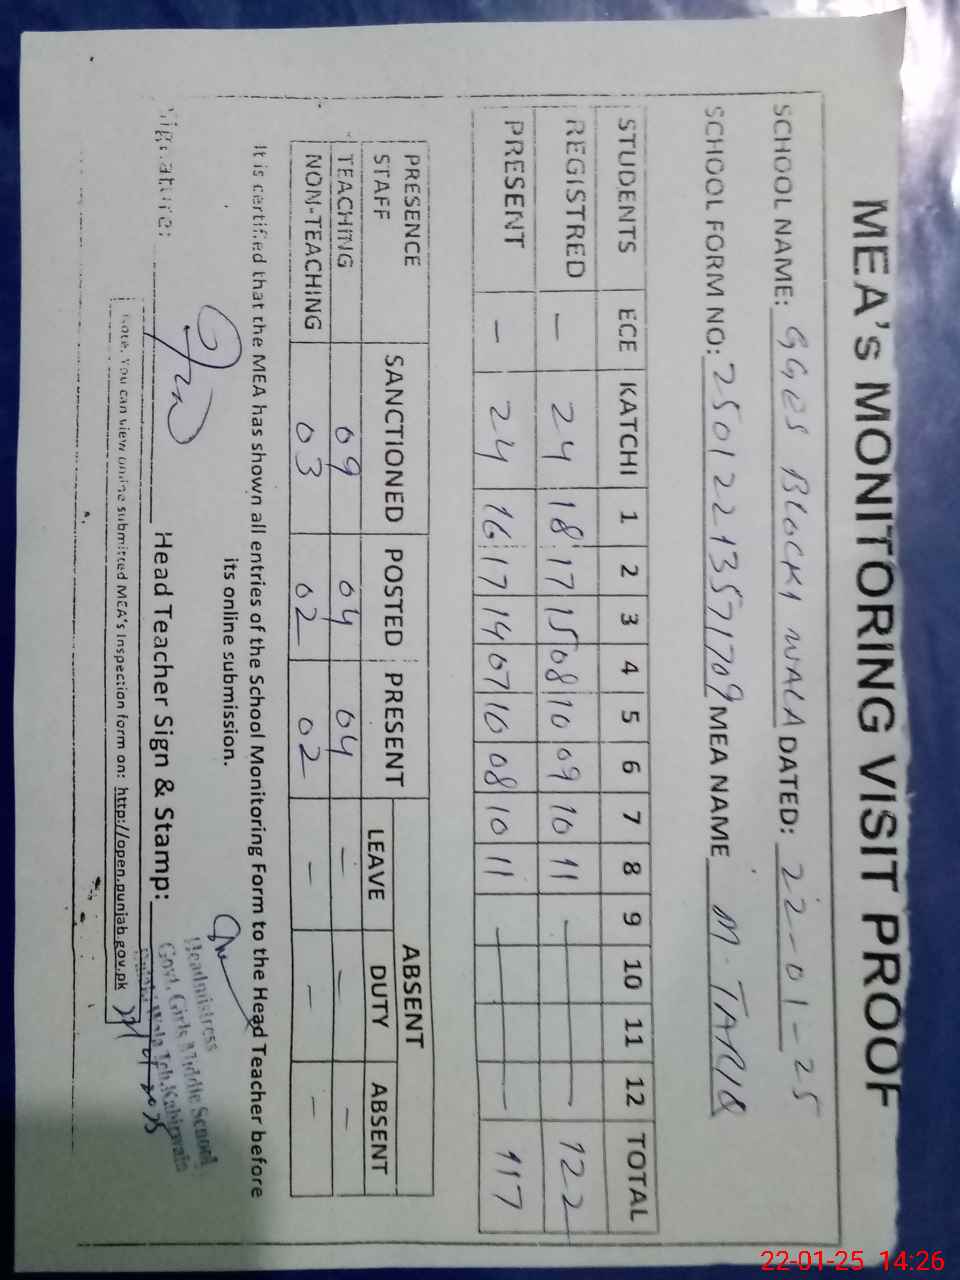 MEA's MONITORING VISIT PROOF
SCHOOL NAME: GGES BLOCKI WALA DATED: 22-01-25
SCHOOL FORM NO: 25012213571709 MEA NAME M. TARIQ
STUDENTS ECE KATCHI 1 2 3 4 5 6 7 8 9 10 11 12 TOTAL
REGISTRED - 24 18 17 15 08 10 09 10 11 - - 122
PRESENT - 24 16 17 14 07 10 08 10 11 - - 117
PRESENCE STAFF SANCTIONED POSTED PRESENT ABSENT
LEAVE DUTY ABSENT
TEACHING 09 04 04 - - -
NON-TEACHING 03 02 02 - - -
It is certified that the MEA has shown all entries of the School Monitoring Form to the Head Teacher before
its online submission.
Signature: Head Teacher Sign & Stamp:
Headmistress
Govt. Girls Middle School
Wala Teh. Kabirwala
Note. You can view online submitted MEA's Inspection form on: http://open.punjab.gov.pk
22-01-25 14:26